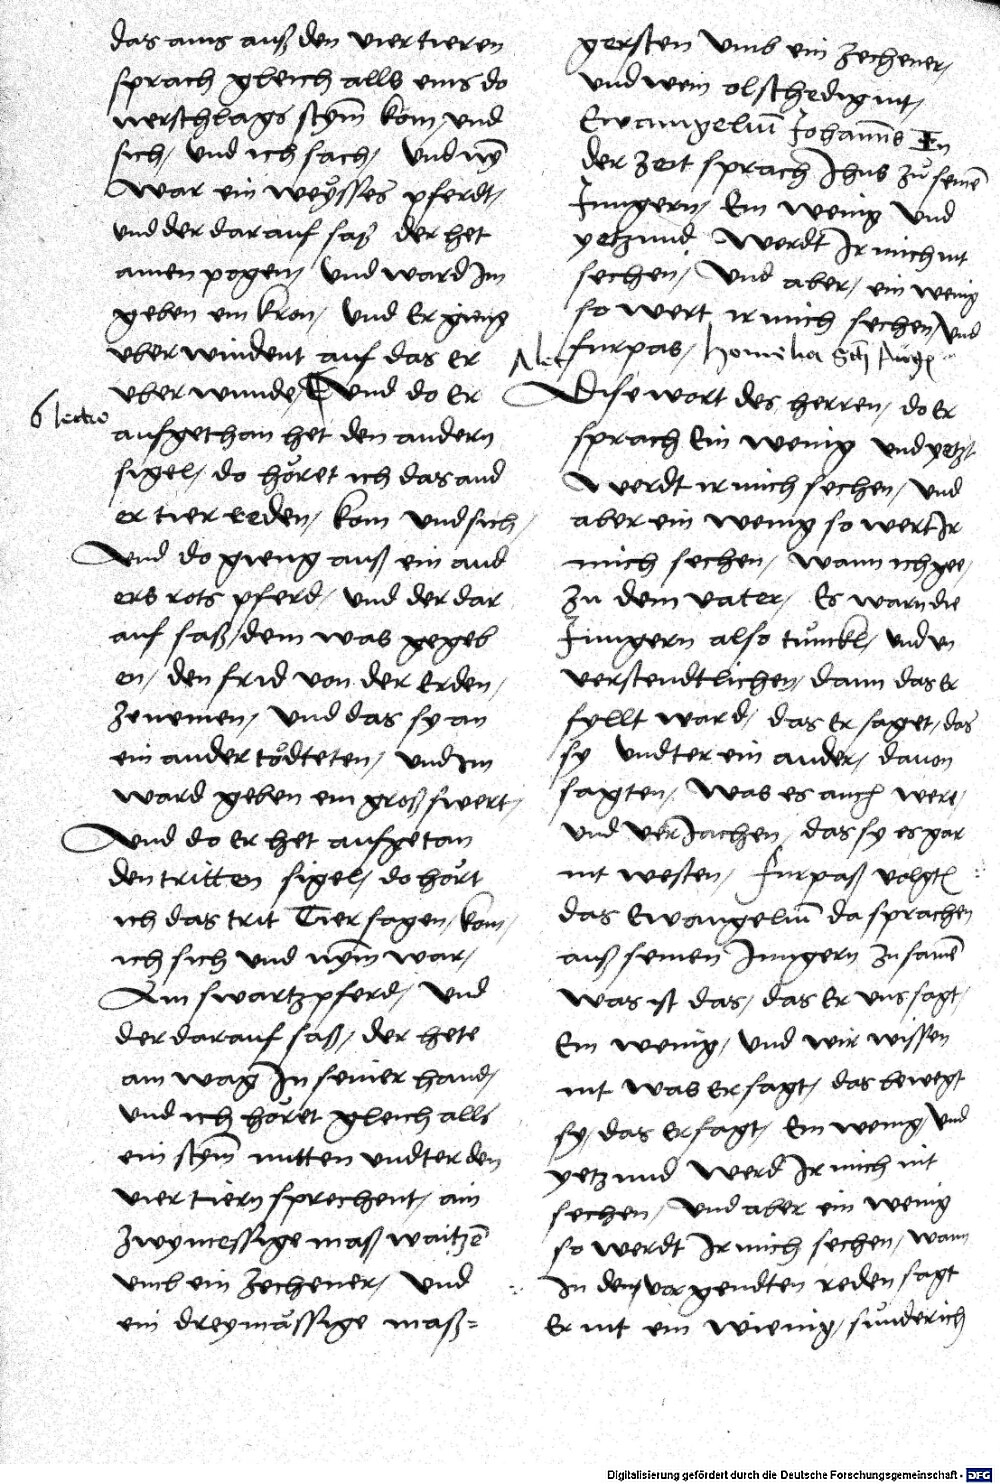 das ains auß den vier tieren
sprach gleich alls eins do
nerschlags stym̄ kom, und
sich, und ich sach, und nym̄
war ein weÿsses pferdt,
und der darauf saß der het
ainen pogen, und ward Im
geben ein kron, und Er gieng
uberwindent auf das er
uberwunde, Und do Er
6 lectio
aufgethan het den andern
sigel, do höret ich das and
er tier reden, kom und sich,
Und do gieng auß ein and
ers rots pferd, und der dar
auf saß, dem was gegeb
en, den frid von der Erden,
ze nemen, und das sy an
ein ander tödteten, und Im
ward geben ein groß swert,
Und do Er het aufgetan
den tritten sigel, do hört
ich das trit Tier sagen, kom,
ich sich und nym̄ war,
Ain swartz pferd, und
der darauf saß, der hete
ain wag In seiner hand,
und ich höret gleich alls
ein stym̄ mitten undter den
vier tiern sprechent, ain
zwymessige maß waitzē
umb ein zechener, und
ein dreymässige maß=
gersten umb ein zechener,
und wein ol schedig nit,
Ewangeliū Johannis In
der zeit sprach Ihus zu seinē
Jungern, Ein wenig und
yetzund werdt Ir mich nit
sechen, und aber, ein wenig
so wert ir mich sechen, und
furpas, Homelia Sct̄i Aug
Dise wort des herren, do Er
sprach Ein wenig und yetzt
werdt ir mich sechen, und
aber ein wenig so wert Ir
mich sechen, wann ich gee,
zu dem vater, Es warn die
Jungern also tunckl, und un
verstendtlichen, dann das Er
fyllt ward, das Er saget, das
sy undter ein ander, davon
sagten, Was es auch were,
und verJachen, das sy es gar
nit westen, furpaß volgt
das Ewangeliū da sprachen
auß seinen Jungern zu samē
was ist das, das Er uns sagt,
Ein wenig, und wir wissen
nit was Er sagt, das bewegt
sy, das Er sagt, Ein wenig, und
yetzund werd Ir mich nit
sechen, und aber ein wenig
so werdt Ir mich sechen, wann
In den vorgendten reden sagt
Er nit ein wienig, sunderich
Digitalisierung gefördert durch die Deutsche Forschungsgemeinschaft - DFG